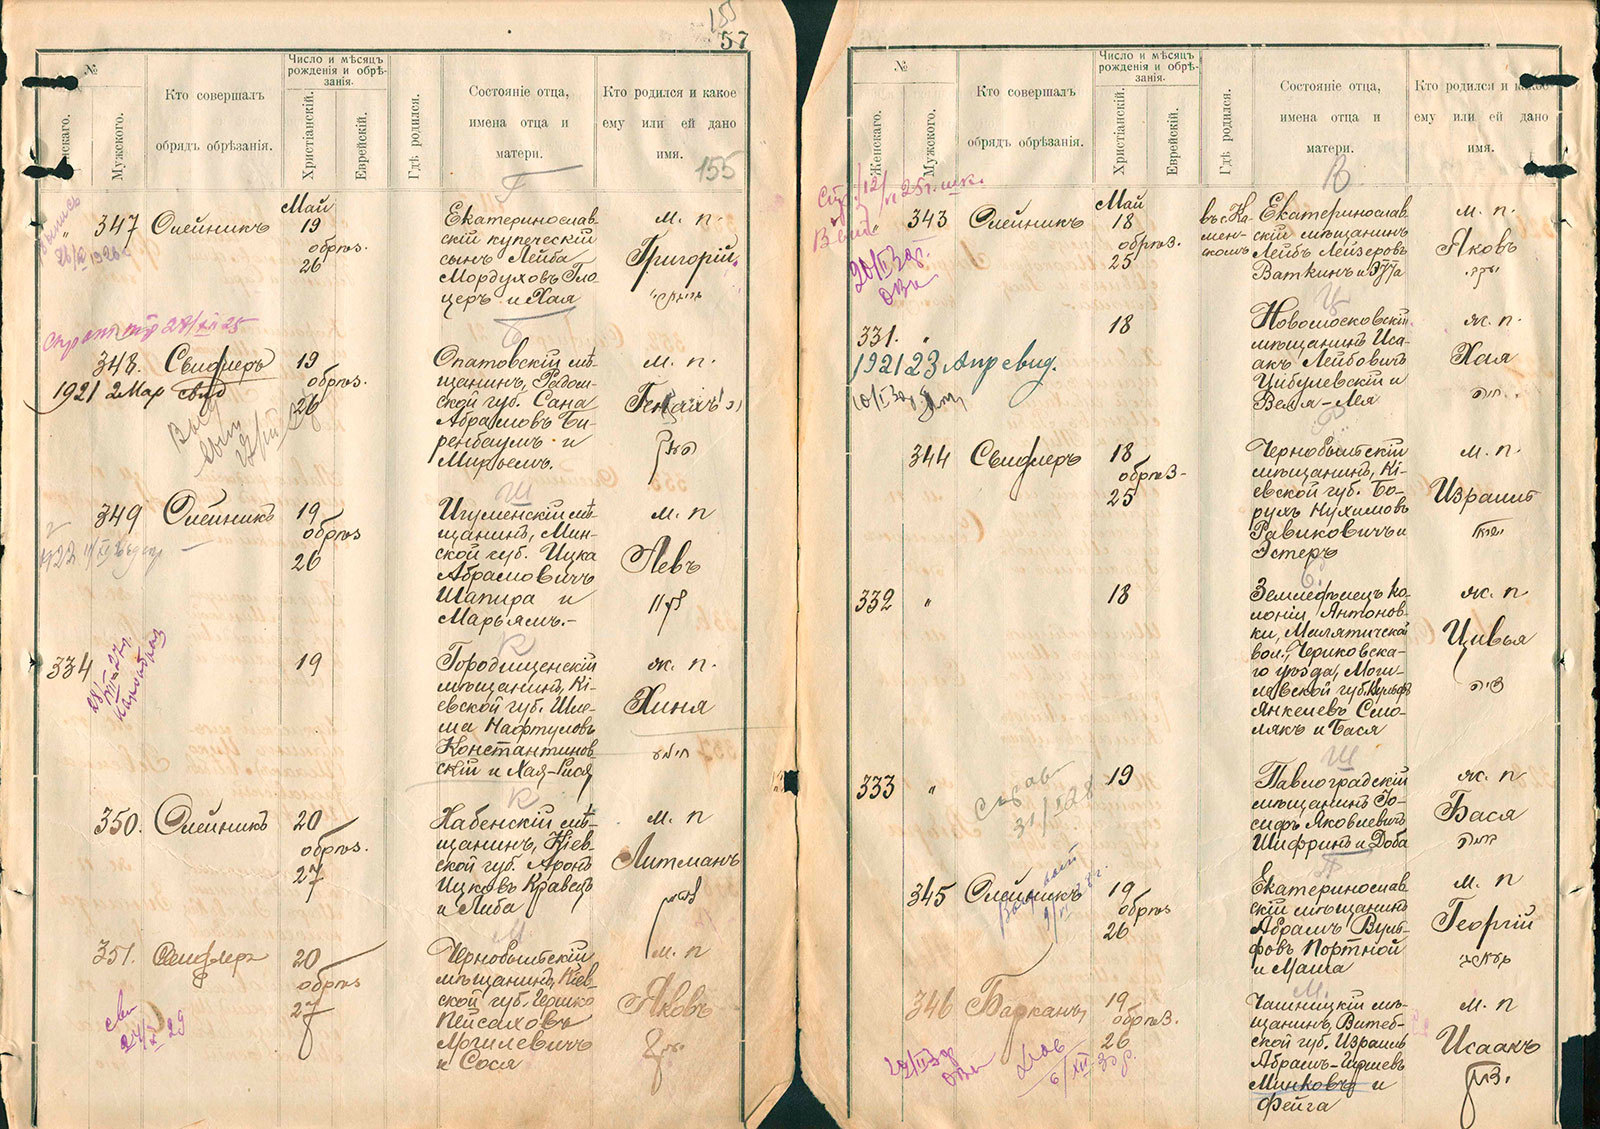 155
57
№
Женскаго.
Мужского.
Кто совершалъ
обрядъ обрѣзанія.
Число и мѣсяцъ
рожденія и обрѣ-
занія.
Христіанскій.
Еврейскій.
Гдѣ родился.
Состояніе отца,
имена отца и
матери.
Кто родился и какое
ему или ей дано
имя.
155
Г
347 Олейникъ
Май
19
обрѣз.
26
Екатеринослав-
скій купеческій
сынъ Лейба
Мордуховъ Гло-
церъ и Хая
м. п.
Григорій
Б
348. Свидлеръ
1921 2 Мар свид
19
обрѣз.
26
Опатовскій мѣ-
щанинъ, Радом-
ской губ. Сана
Абрамовъ Би-
ренбаумъ и
Мирьемъ.
м. п.
Ш
349 Олейникъ
19
обрѣз
26
Игуменскій мѣ-
щанинъ, Мин-
ской губ. Ицка
Абрамовичъ
Шапира и
Марьямъ.-
м. п
Левъ
К
334
19
Городищенскій
мѣщанинъ, Кі-
евской губ. Шле-
ма Нафтуловъ
Константинов-
скій и Хая-Рися
ж. п.
Хиня
К
350. Олейникъ
20
обрѣз.
27
мѣ-
щанинъ, Кіев-
ской губ. Аронъ
Ицковъ Кравецъ
и Либа
м. п
Литманъ
М
351. Свидлеръ
20
обрѣз
27
Чернобыльскій
мѣщанинъ, Кіев-
ской губ. Гершко
Пейсаховъ
Могилевичъ
и Сося
м. п
Яковъ
№
Женскаго.
Мужского.
Кто совершалъ
обрядъ обрѣзанія.
Число и мѣсяцъ
рожденія и обрѣ-
занія.
Христіанскій.
Еврейскій.
Гдѣ родился.
Состояніе отца,
имена отца и
матери.
Кто родился и какое
ему или ей дано
имя.
В
343 Олейникъ
Май
18
обрѣз.
25
въ с. Ка-
мен-
скомъ
Екатеринослав-
скій мѣщанинъ
Лейбъ Лейзеровъ
Ваткинъ и
м. п.
Яковъ
Ц
331. "
1921 23 Апр свид.
18
Новомосковскій
мѣщанинъ Иса-
акъ Лейбовичъ
Цибулевскій и
Веля-Лея
ж. п.
Хая
344 Свидлеръ
18
обрѣз-
25
Чернобыльскій
мѣщанинъ, Кі-
евской губ. Бо-
рухъ Нухимовъ
Равиковичъ и
Эстеръ
м. п.
Израиль
ישראל
332 "
18
Земледѣлецъ ко-
лоніи Антонов-
ки, Милятичской
вол., Чериковска-
го уѣзда, Моги-
левской губ. Вульфъ
Янкелевъ Смо-
лякъ и Бася
ж. п
Цивья
ציויה
Ш
333 "
19
Павлоградскій
мѣщанинъ Іо-
сифъ Яковлевичъ
Шифринъ и Доба
ж. п
Бася
П
345 Олейникъ
19
обрѣз
26
Екатеринослав-
скій мѣщанинъ
Абрамъ Вуль-
фовъ Портной
и Маша
м. п
Георгій
М.
346 Барканъ
19
обрѣз.
26
Чашницкій мѣ-
щанинъ, Витеб-
ской губ. Израиль
Абрамъ-Гиршевъ
Минковъ и
Фейга
м. п
Исаакъ